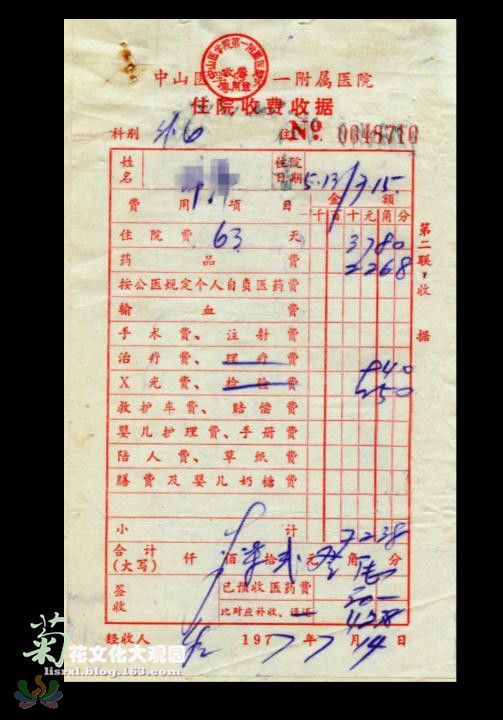 中山医学院第一附属医院
收费专用章
中山医学院第一附属医院
住院收费收据
科别 住 No. 0048716
姓名 住院日期 5.13/7.15.
费用项目 金额
千百十元角分
住院费 63 天 3780
药品费 2268
按公医规定个人自负医药费
输血费
手术费、注射费
治疗费、理疗费 940
X光费、检验费 250
救护车费、赔偿费
婴儿护理费、手册费
陪人费、草纸费
膳费及婴儿奶糖费
小计 7238
合计(大写) 仟 佰 拾 元 角 分
签收 已预收医药费
比对应补收、退还
经收人 1977年7月14日
第二联:收据
菊花文化大观园
lisrxl.blog.163.com